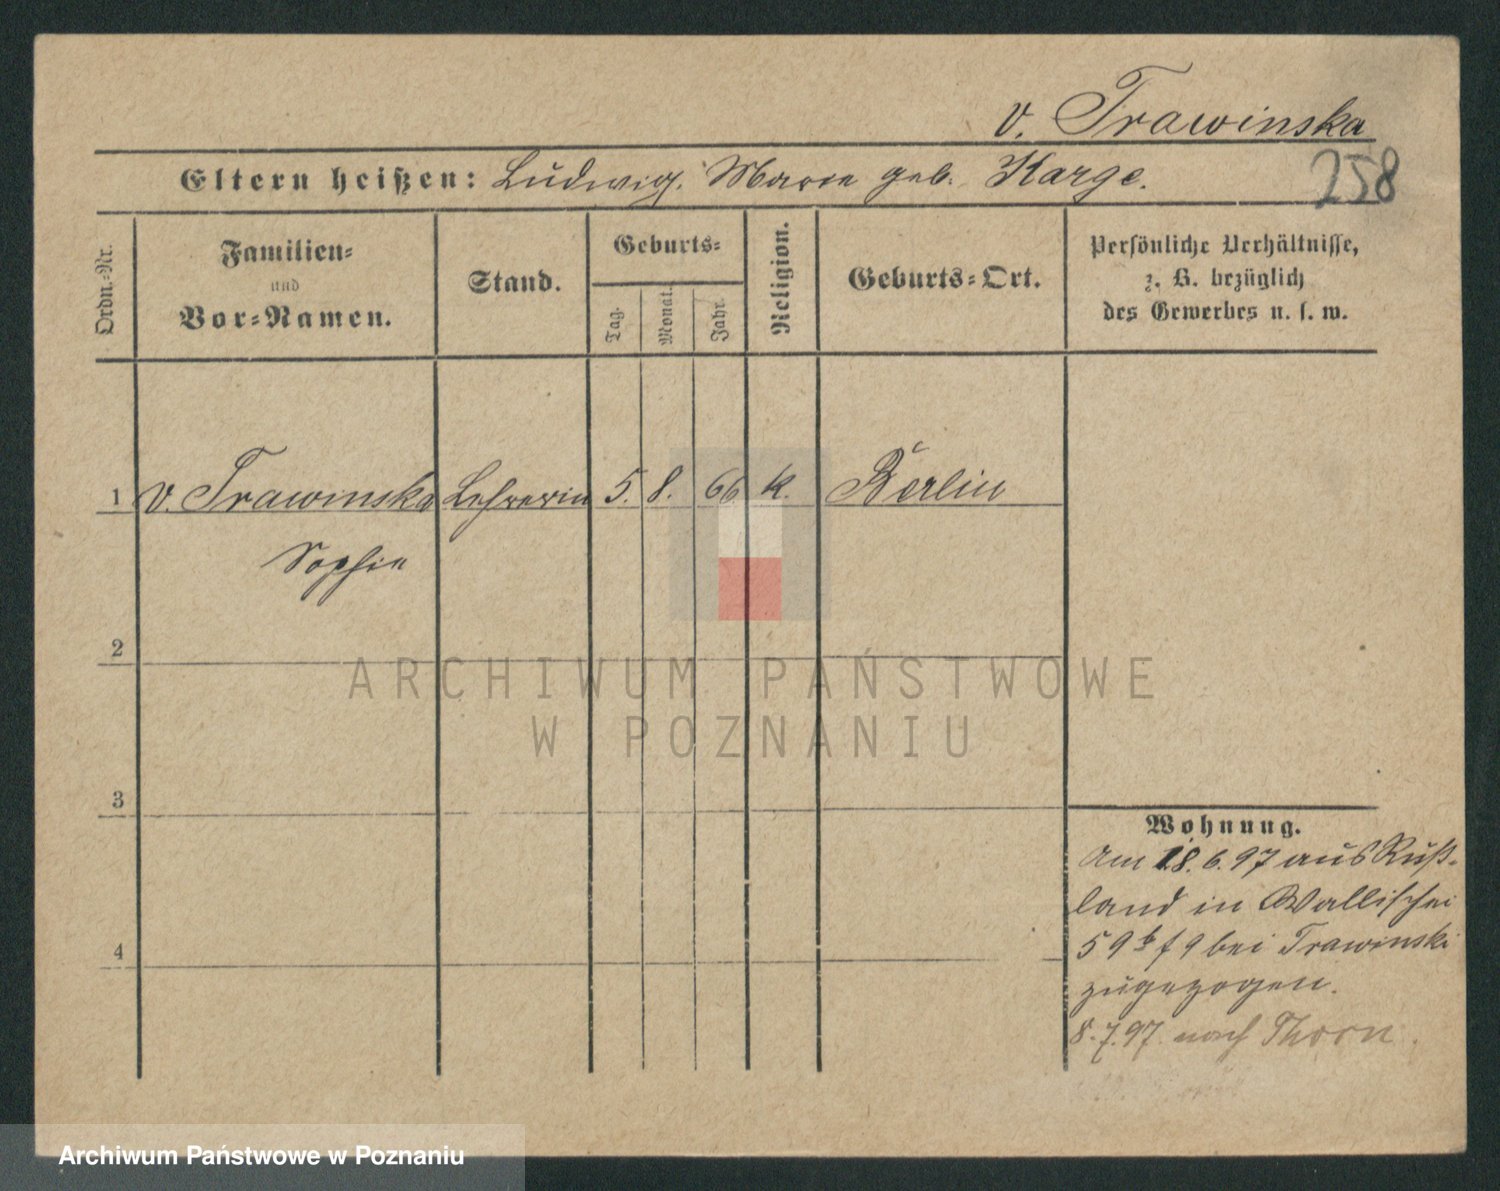 v. Trawinska
Eltern heißen: Ludwig. Marie geb. Karge.
258
Ordn.-Nr.
Familien-
und
Vor-Namen.
Stand.
Geburts-
Tag.
Monat.
Jahr.
Religion.
Geburts-Ort.
Persönliche Verhältnisse,
z. B. bezüglich
des Gewerbes u. s. w.
1 v. Trawinska Lehrerin 5. 8. 66 k. Berlin
Sophie
2
ARCHIWUM PAŃSTWOWE
W POZNANIU
3
Wohnung.
Am 18.6.97 aus Ruß-
land in Wallischei
4
59 b f 9 bei Trawinski
zugezogen.
8.7.97 nach Thorn.
Archiwum Państwowe w Poznaniu